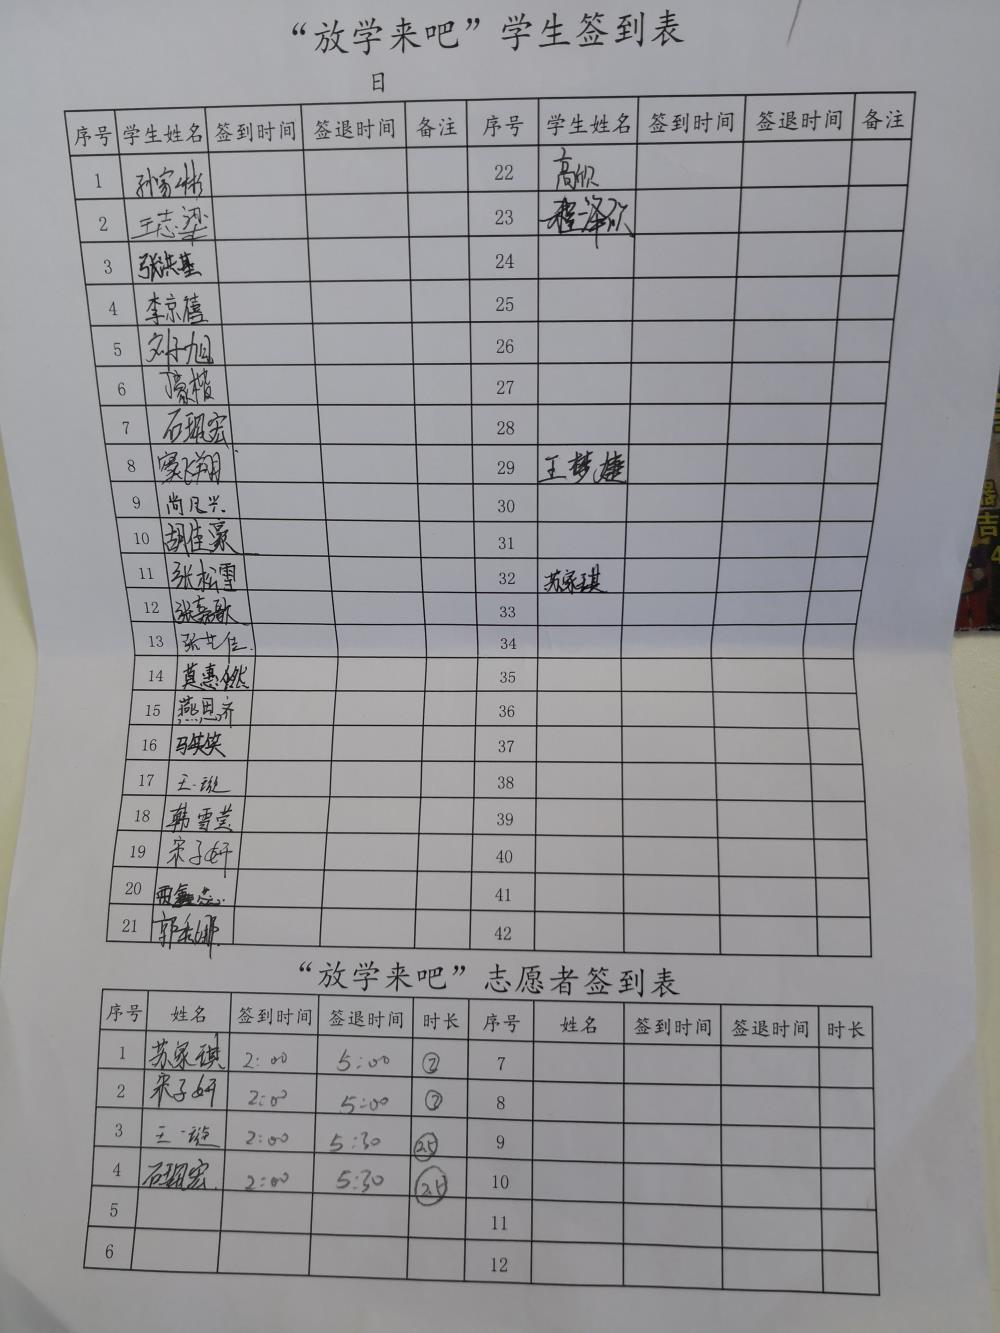 “放学来吧”学生签到表
日
序号 学生姓名 签到时间 签退时间 备注 序号 学生姓名 签到时间 签退时间 备注
1 孙家彬 22 高欣
2 王志梁 23 程泽欣
3 张洪基 24
4 李京禧 25
5 刘子旭 26
6 27
7 石珺宏 28
8 翔 29 王梦婕
9 尚凡兴 30
10 胡佳豪 31
11 张松雪 32 苏家琪
12 张嘉歌 33
13 张艺佳 34
14 莫惠然 35
15 燕思齐 36
16 马笑笑 37
17 王一璇 38
18 韩雪莹 39
19 宋子妍 40
20 41
21 郭 娜 42
“放学来吧”志愿者签到表
序号 姓名 签到时间 签退时间 时长 序号 姓名 签到时间 签退时间 时长
1 苏家琪 2:00 5:00 ② 7
2 宋子妍 2:00 5:00 ② 8
3 王一璇 2:00 5:30 2.5 9
4 石珺宏 2:00 5:30 2.5 10
5 11
6 12